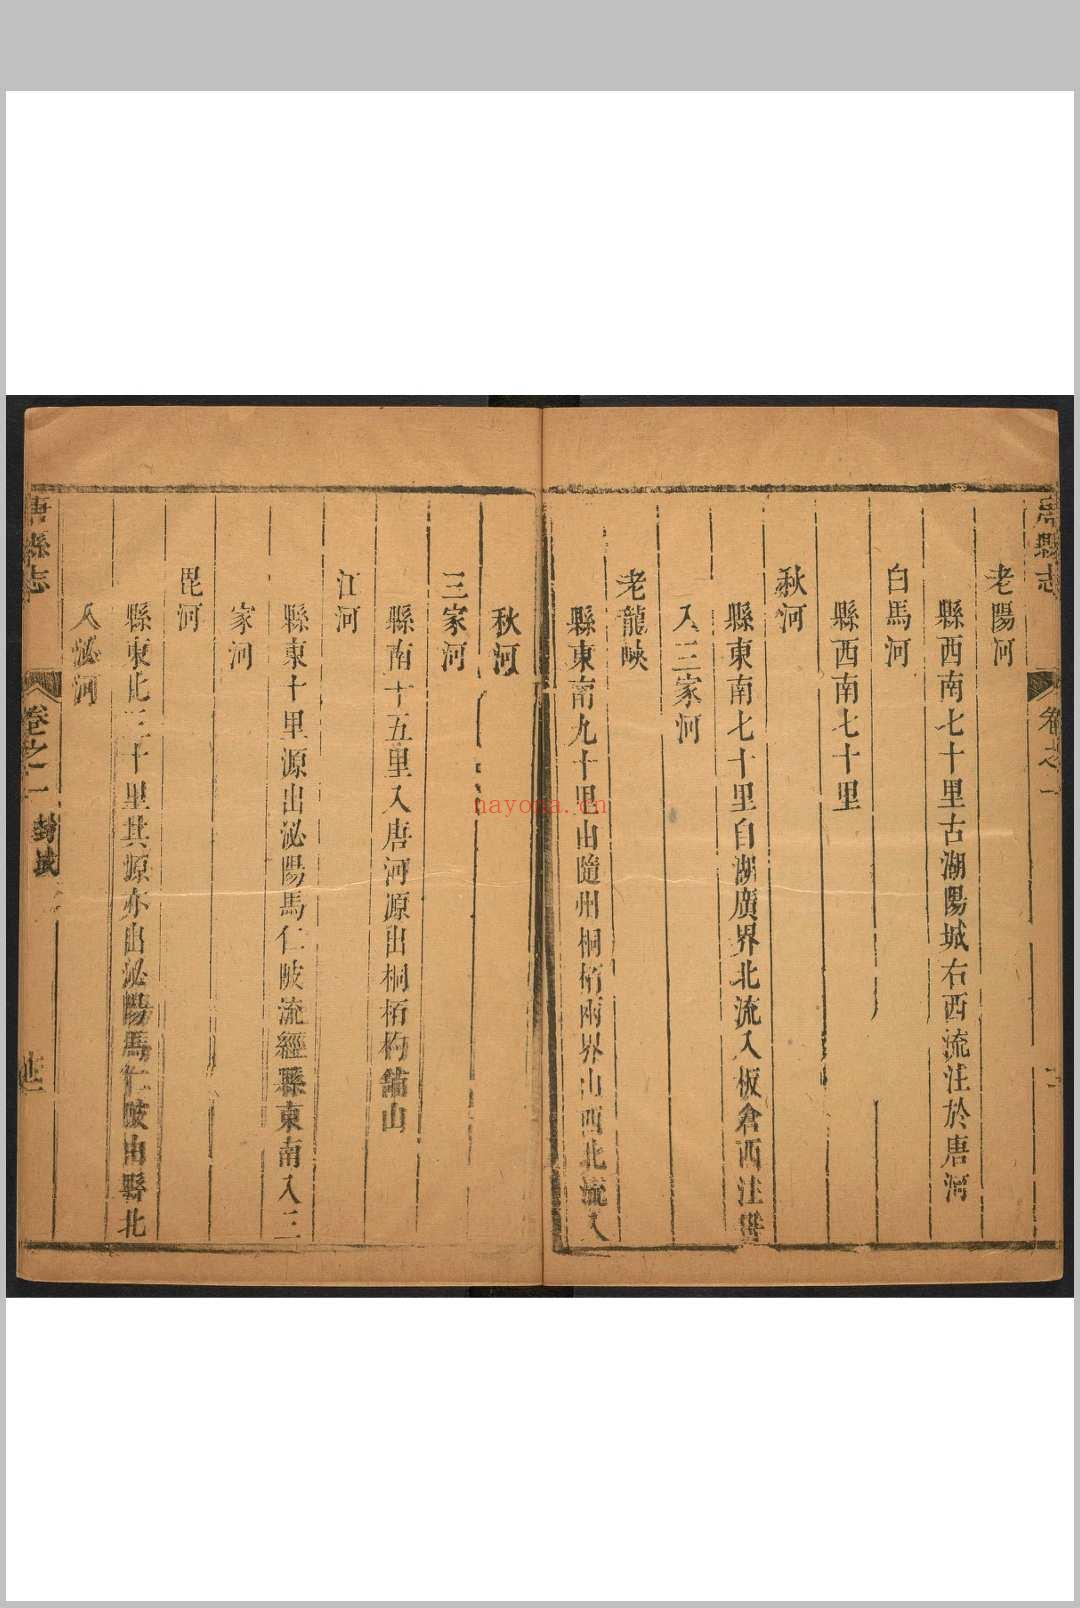 唐縣志
卷之一
老陽河
縣西南七十里古湖陽城右西流注於唐河
白馬河
縣西南七十里
秋河
縣東南七十里自湖廣界北流入板倉西注澧
入三家河
老龍峽
縣東南九十里由隨州桐栢兩界山西北流入
秋河
三家河
縣南十五里入唐河源出桐栢杓鋪山
江河
縣東十里源出泌陽馬仁陂流經縣東南入三
家河
毘河
縣東北三十里其源亦出泌陽馬仁陂由縣北
入泌河
唐縣志
卷之一
封域
nayona.cn